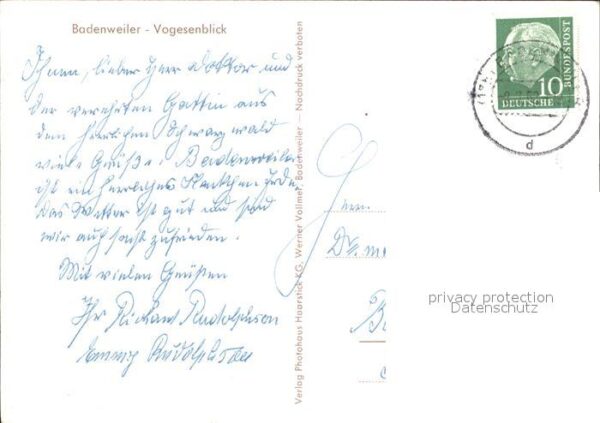 Badenweiler - Vogesenblick
Ihnen, lieber Herr Doktor und
der verehrten Gattin aus
dem Schwarzwald
viele Grüße. Badenweiler
ist ein herrliches Fleckchen Erde.
Das Wetter ist gut und sind
wir auch sonst zufrieden.
Mit vielen Grüßen
Ihr Richard Rudolphsen
Rudolphsen
Verlag Photohaus Haarstick KG. Werner Vollmer, Badenweiler — Nachdruck verboten
Herrn
Dr. m
10
DEUTSCHE
BUNDESPOST
d
privacy protection
Datenschutz